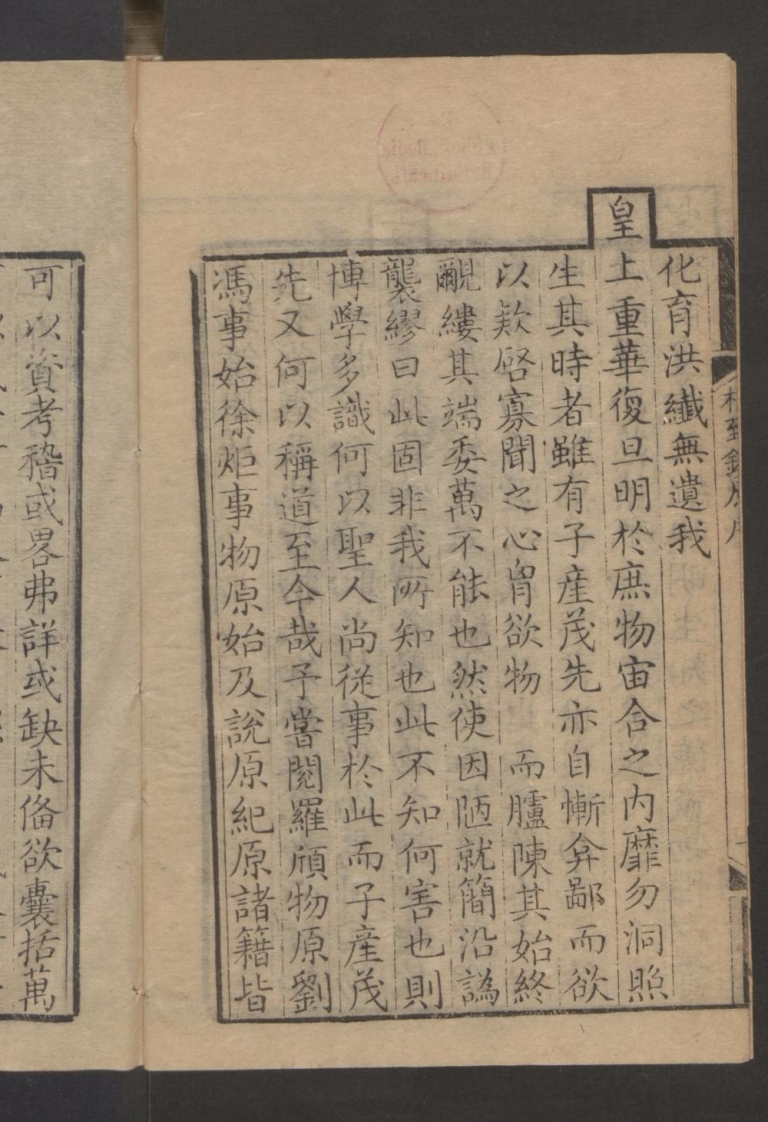 化育洪纖無遺我
皇上重華復旦明於庶物宙合之内靡勿洞照
生其時者雖有子産茂先亦自慚弇鄙而欲
以欵啓寡聞之心胷欲物 而臚陳其始終
覼縷其端委萬不能也然使因陋就簡沿譌
襲繆曰此固非我所知也此不知何害也則
博學多識何以聖人尚從事於此而子産茂
先又何以稱道至今哉予嘗閲羅頎物原劉
馮事始徐炬事物原始及説原紀原諸籍皆
可以資考稽或畧弗詳或缺未俻欲囊括萬